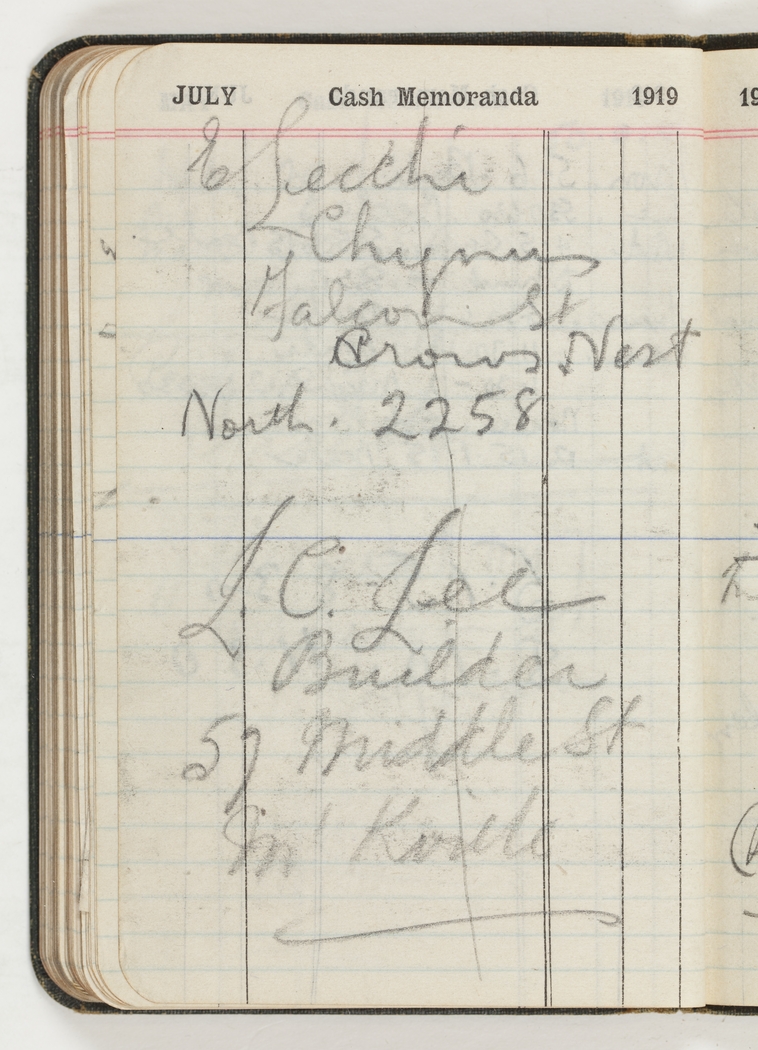 JULY Cash Memoranda 1919
E Secchi
Falcon St
Crows Nest
North. 2258.
L. C. Lee
Builder
57 Middle St